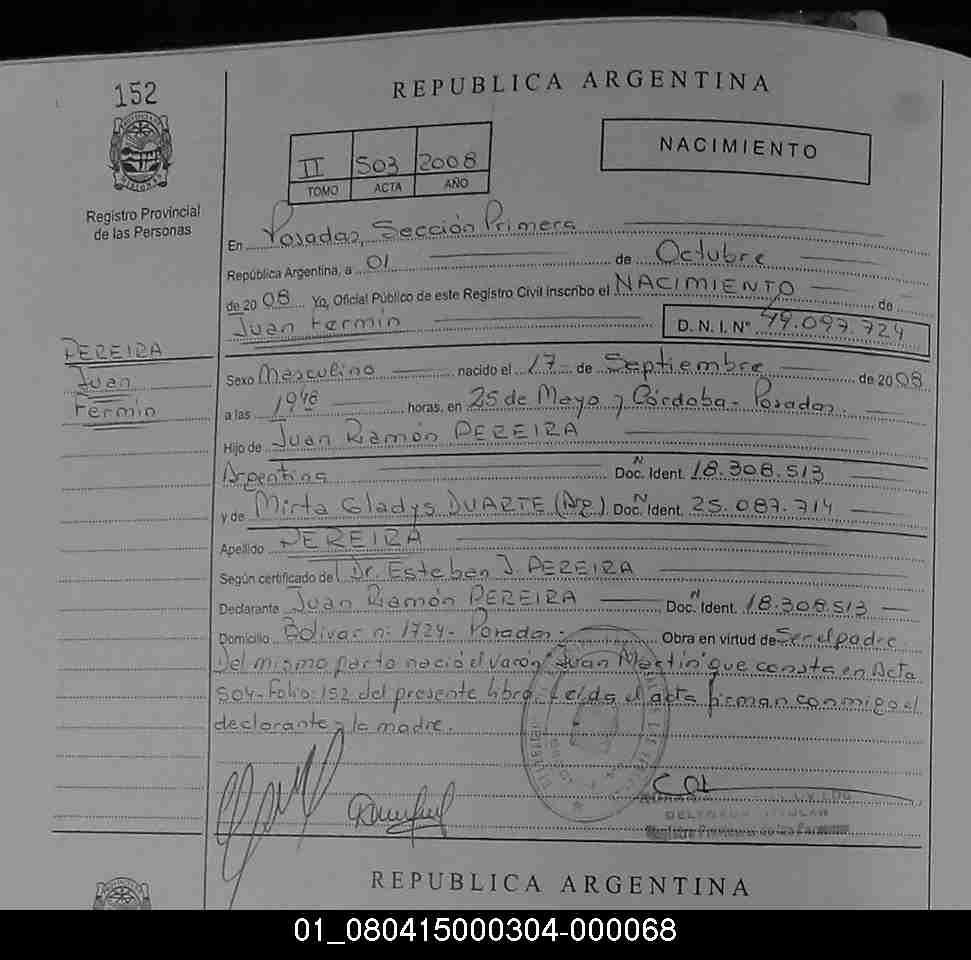 152
REPUBLICA ARGENTINA
II 503 2008
TOMO ACTA AÑO
NACIMIENTO
Registro Provincial
de las Personas
En Posadas, Sección Primera
República Argentina, a 01 de Octubre
de 2008 Yo, Oficial Público de este Registro Civil inscribo el NACIMIENTO de
Juan Fermín D.N.I. Nº 49.097.724
PEREIRA
Juan
Fermín
Sexo Masculino nacido el 17 de Septiembre de 2008
a las 19 48 horas, en 25 de Mayo y Córdoba - Posadas.
Hijo de Juan Ramón PEREIRA
Argentina Doc. Ident. N 18.308.513
y de Mirta Gladys DUARTE (Arg.) Doc. Ident. N 25.087.714
Apellido PEREIRA
Según certificado del Dr. Esteban J. PEREIRA
Declarante Juan Ramón PEREIRA Doc. Ident. N 18.308.513
Domicilio Bolívar n: 1724 - Posadas. Obra en virtud de Ser el padre.
Del mismo parto nació el varón "Juan Martín" que consta en Acta
504 - Folio: 152 del presente libro. Leída el acta firman conmigo el
declarante y la madre.
TITULAR
Registro Provincial de las Personas
REPUBLICA ARGENTINA
01_080415000304-000068